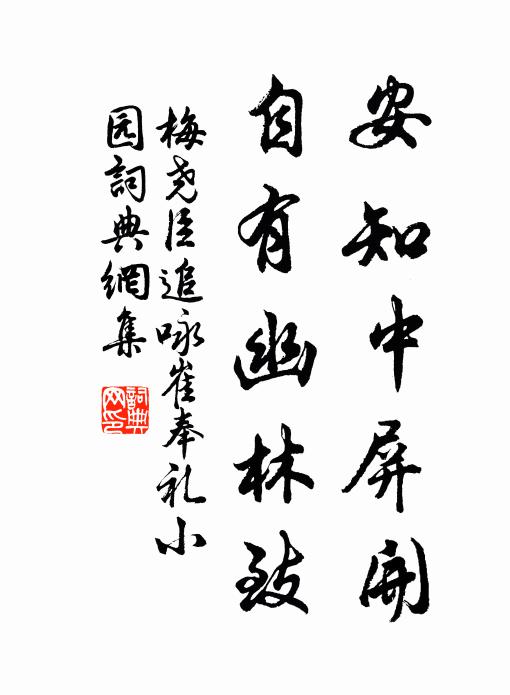 安知中屏開
自有幽林致
梅尧臣追咏崔奉礼小
园詞典網集
詞典
网印